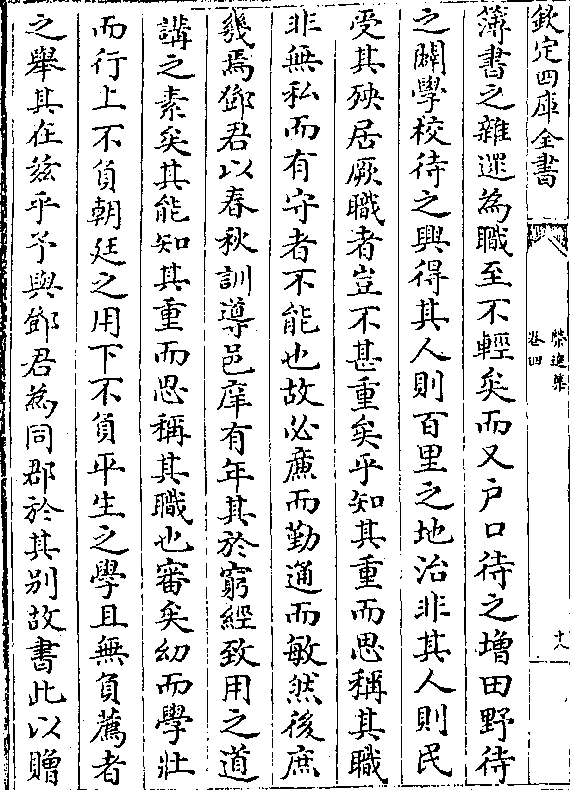 欽定四庫全書
榮進集
卷四
十八
簿書之雜遝為職至不輕矣而又户口待之増田野待
之闢學校待之興得其人則百里之地治非其人則民
受其殃居厥職者豈不甚重矣乎知其重而思稱其職
非無私而有守者不能也故必亷而勤通而敏然後庶
幾焉鄧君以春秋訓導邑庠有年其於窮經致用之道
講之素矣其能知其重而思稱其職也審矣幼而學壯
而行上不負朝廷之用下不負平生之學且無負薦者
之舉其在兹乎予與鄧君為同郡於其别故書此以贈